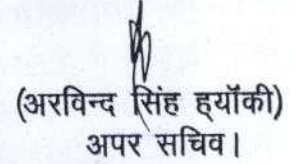 (अरविन्द सिंह ह्यॉकी)
अपर सचिव।